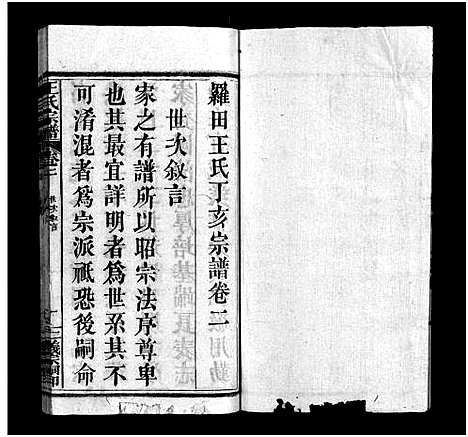 羅田王氏丁亥宗譜卷二
世次敘言
家之有譜所以昭宗法序尊卑
也其最宜詳明者為世系其不
可淆混者為宗派祗恐後嗣命
王氏宗譜
卷二
世次敘言